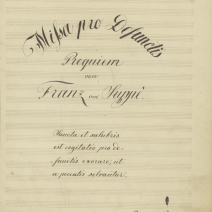 Missa pro Defunctis
Requiem
von
Franz von Suppè.
Sancta et salubris
est cogitatio pro de-
functis exorare, ut
a peccatis solvantur.